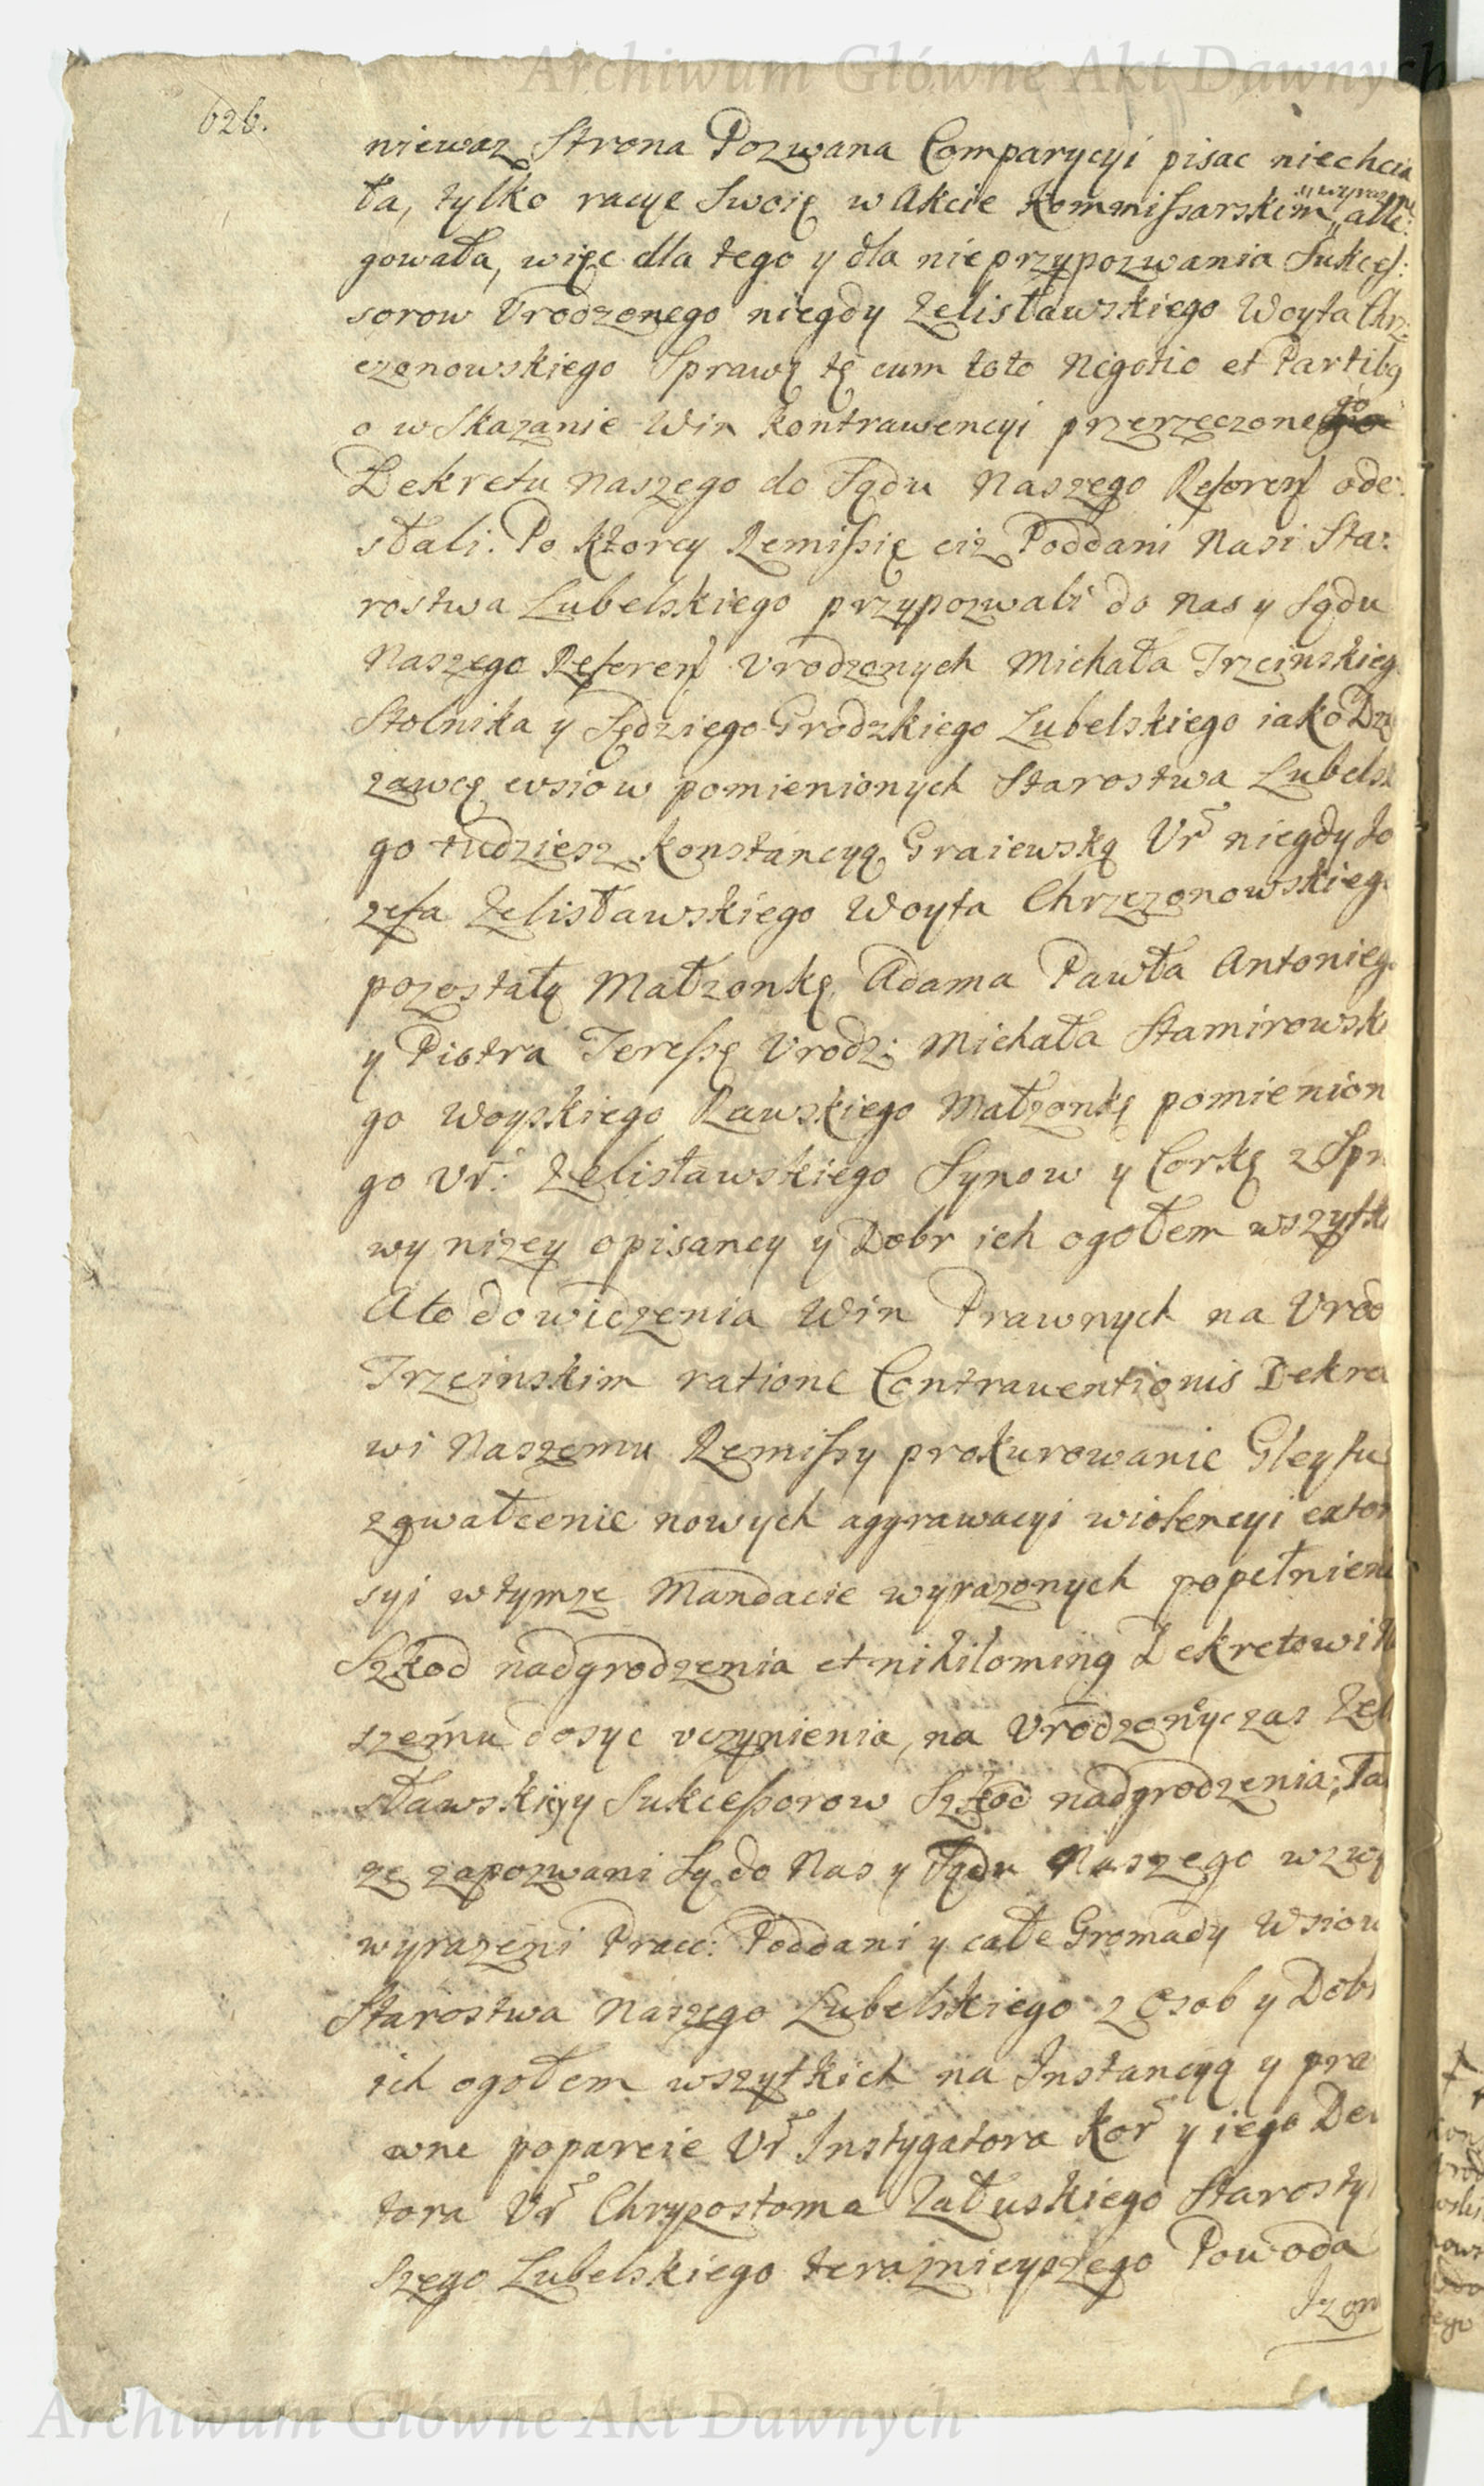 Archiwum Główne Akt Dawnych
626.
niewaz Strona Pozwana Comparycyi pisac niechcia
ła, tylko racye Swoię w Akcie Kommissarskim alle:
gowała, więc dla tego y dla nieprzypozwania Sukces:
sorow Vrodzonego niegdy Zelisławskiego Woyta Chrz:
czonowskiego Sprawę tę cum toto Negotio et Partibq
o wskazanie Win kontrawencyi przerzeczonego
Dekretu Naszego do Sądu Naszego Referen ode:
słali. Po ktorey Remissię ciz Poddani Nasi Sta:
rostwa Lubelskiego przypozwali do Nas y Sądu
Naszego Referen Vrodzonych Michała Trzcinskieg
Stolnika y Sędziego Grodzkiego Lubelskiego iako Dzę
zawcę wsiow pomienionych Starostwa Lubelsk
go tudziesz Konstancyą Graiewską Vr niegdy Jo
zefa Zelisławskiego Woyta Chrzczonowskieg
pozostałą Małzonkę, Adama Pawła Antonieg
y Piotra Teressę Vrodz: Michała Stamirowsk
go Woyskiego Rawskiego Małzonkę pomienion
go Vr: Zelisławskiego Synow y Corkę z Spr
wy nizey opisaney y Dobr ich ogołem wszytk
Ato do widzenia Win Prawnych na Vrod
Trzcinskim ratione Contraventionis Dekre
wi Naszemu Remissy prokurowanie Gleytu
zgwałcenie nowych aggrawacyi wiolencyi extor
syi wtymze Mandacie wyrazonych popełnieni
Szkod nadgrodzenia et nihilominq Dekretowi N
szemu dosyc vczynienia, na Vrodzonych zas Zel
sławskiey Sukcessorow Szkod nadgrodzenia; Ta
ze zapozwani są do Nas y Sądu Naszego wzwy
wyrazeni Prace: Poddani y całe Gromady Wsiow
Starostwa Naszego Lubelskiego z Osob y Dobr
ich ogołem wszytkich na Instancyą y pra
wne poparcie Vr Instygatora Kor y iego De
tora Vr Chryzostoma Załuskiego Starosty
szego Lubelskiego teraznieyszego Powoda
Archiwum Główne Akt Dawnych